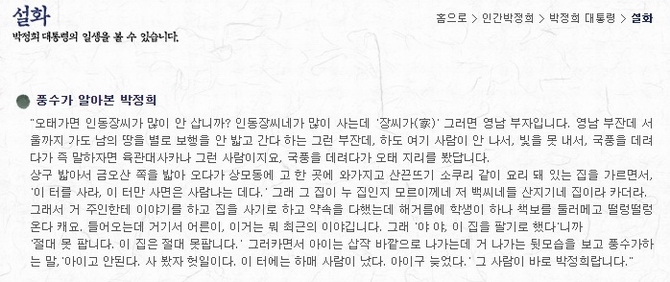 설화
박정희 대통령의 일생을 볼 수 있습니다.
홈으로 > 인간박정희 > 박정희 대통령 > 설화
풍수가 알아본 박정희
"오태가면 인동장씨가 많이 안 삽니까? 인동장씨네가 많이 사는데 '장씨가(家)' 그러면 영남 부자입니다. 영남 부잔데 서
울까지 가도 남의 땅을 별로 보행을 안 밟고 간다 하는 그런 부잔데, 하도 여기 사람이 안 나서, 빛을 못 내서, 국풍을 데려
다가 즉 말하자면 육관대사카나 그런 사람이지요, 국풍을 데려다가 오태 지리를 봤답니다.
상구 밟아서 금오산 쪽을 밟아 오다가 상모동에 고 한 곳에 와가지고 산끈뜨기 소쿠리 같이 요리 돼 있는 집을 가르면서,
'이 터를 사라, 이 터만 사면은 사람나는 데다.' 그래 그 집이 누 집인지 모르이께네 저 백씨네들 산지기네 집이라 카더라.
그래서 거 주인한테 이야기를 하고 집을 사기로 하고 약속을 다했는데 해거름에 학생이 하나 책보를 둘러메고 떨렁떨렁
온다 캐요. 들어오는데 거기서 어른이, 이거는 뭐 최근의 이야깁니다. 그래 '야 야, 이 집을 팔기로 했다'니까
'절대 못 팝니다. 이 집은 절대 못팝니다.' 그러카면서 아이는 삽작 바깥으로 나가는데 거 나가는 뒷모습을 보고 풍수가하
는 말,'아이고 안된다. 사 봤자 헛일이다. 이 터에는 하매 사람이 났다. 아이구 늦었다.' 그 사람이 바로 박정희랍니다."